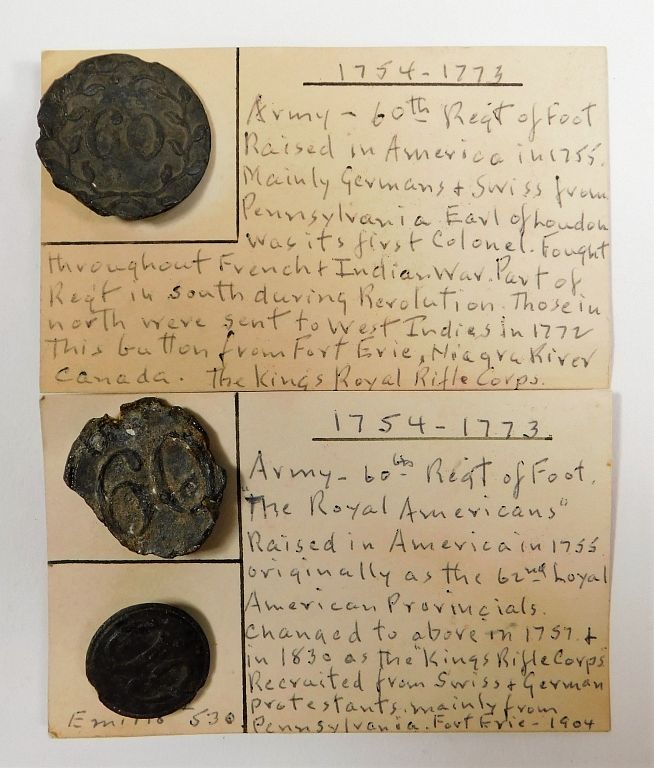 1754-1773
60
Army - 60th Regt of Foot
Raised in America in 1755.
Mainly Germans & Swiss from
Pennsylvania Earl of Loudon
was its first Colonel. Fought
throughout French & Indian War. Part of
Regt in south during Revolution. Those in
north were sent to West Indies in 1772
This button from Fort Erie, Niagra River
Canada. The Kings Royal Rifle Corps.
1754-1773
60
Army - 60th Regt of Foot.
"The Royal Americans"
Raised in America in 1755
originally as the 62nd Loyal
American Provincials.
changed to above in 1757. &
in 1830 as the "Kings Rifle Corps"
Recruited from Swiss & German
protestants. mainly from
Pennsylvania. Fort Erie - 1904
530.